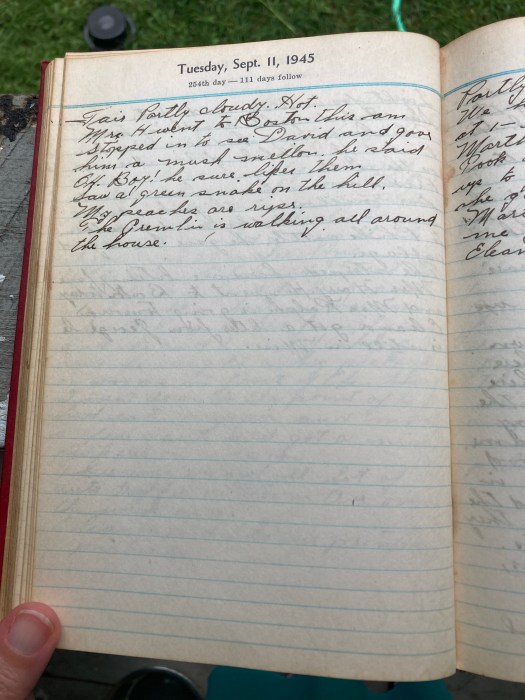 Tuesday, Sept. 11, 1945
254th day — 111 days follow
Fair Partly cloudy. Hot.
Mrs H went to Boston this am
stopped in to see David and gave
him a mush mellon. he said
Oh Boy! he sure likes them
Saw a green snake on the hill.
My peaches are ripe.
The Gremlin is walking all around
the house.
Partly
We
at 1-
Marth
Took
us to
she g
Mar
me
Elean